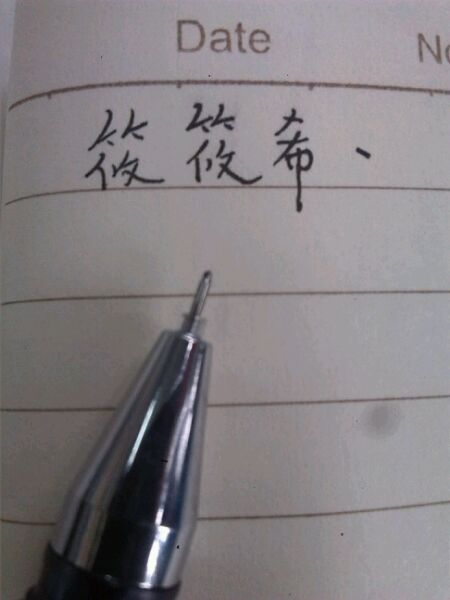 Date
筱筱希、